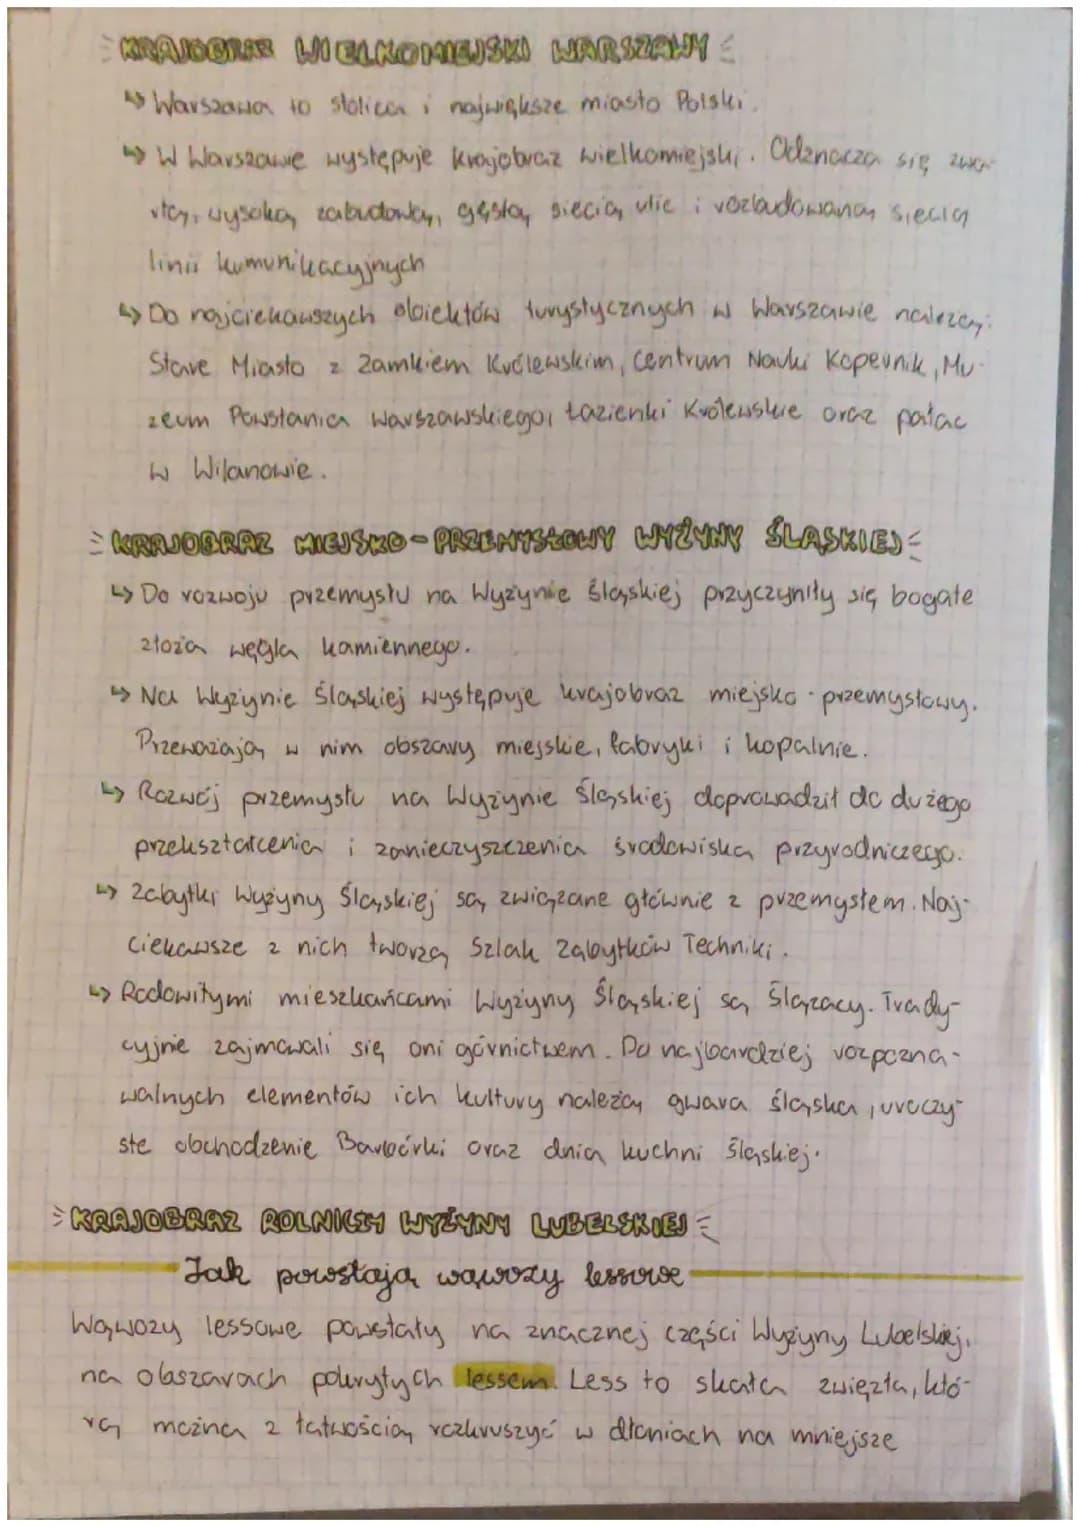 KRAJOBRAZ WIELKOMIEJSKI WARSZAWY
↳ Warszawa to stolica i największe miasto Polski.
↳ W Warszawie występuje krajobraz wielkomiejski. Odznacza się zwa-
rtą, wysoką zabudową, gęstą siecią ulic i rozbudowaną siecią
linii komunikacyjnych
↳ Do najciekawszych obiektów turystycznych w Warszawie należą:
Stare Miasto z Zamkiem Królewskim, Centrum Nauki Kopernik, Mu-
zeum Powstania Warszawskiego, Łazienki Królewskie oraz pałac
w Wilanowie.
KRAJOBRAZ MIEJSKO-PRZEMYSŁOWY WYŻYNY ŚLĄSKIEJ
↳ Do rozwoju przemysłu na Wyżynie Śląskiej przyczyniły się bogate
złoża węgla kamiennego.
↳ Na Wyżynie Śląskiej występuje krajobraz miejsko-przemysłowy.
Przeważają w nim obszary miejskie, fabryki i kopalnie.
↳ Rozwój przemysłu na Wyżynie Śląskiej doprowadził do dużego
przekształcenia i zanieczyszczenia środowiska przyrodniczego.
↳ Zabytki Wyżyny Śląskiej są związane głównie z przemysłem. Naj-
ciekawsze z nich tworzą Szlak Zabytków Techniki.
↳ Rodowitymi mieszkańcami Wyżyny Śląskiej są Ślązacy. Trady-
cyjnie zajmowali się oni górnictwem. Do najbardziej rozpozna-
walnych elementów ich kultury należą gwara śląska, uroczy-
ste obchodzenie Barbórki oraz dnia kuchni śląskiej.
KRAJOBRAZ ROLNICZY WYŻYNY LUBELSKIEJ
Jak powstają wąwozy lessowe
Wąwozy lessowe powstały na znacznej części Wyżyny Lubelskiej,
na obszarach pokrytych lessem. Less to skała zwięzła, któ-
rą można z łatwością rozkruszyć w dłoniach na mniejsze